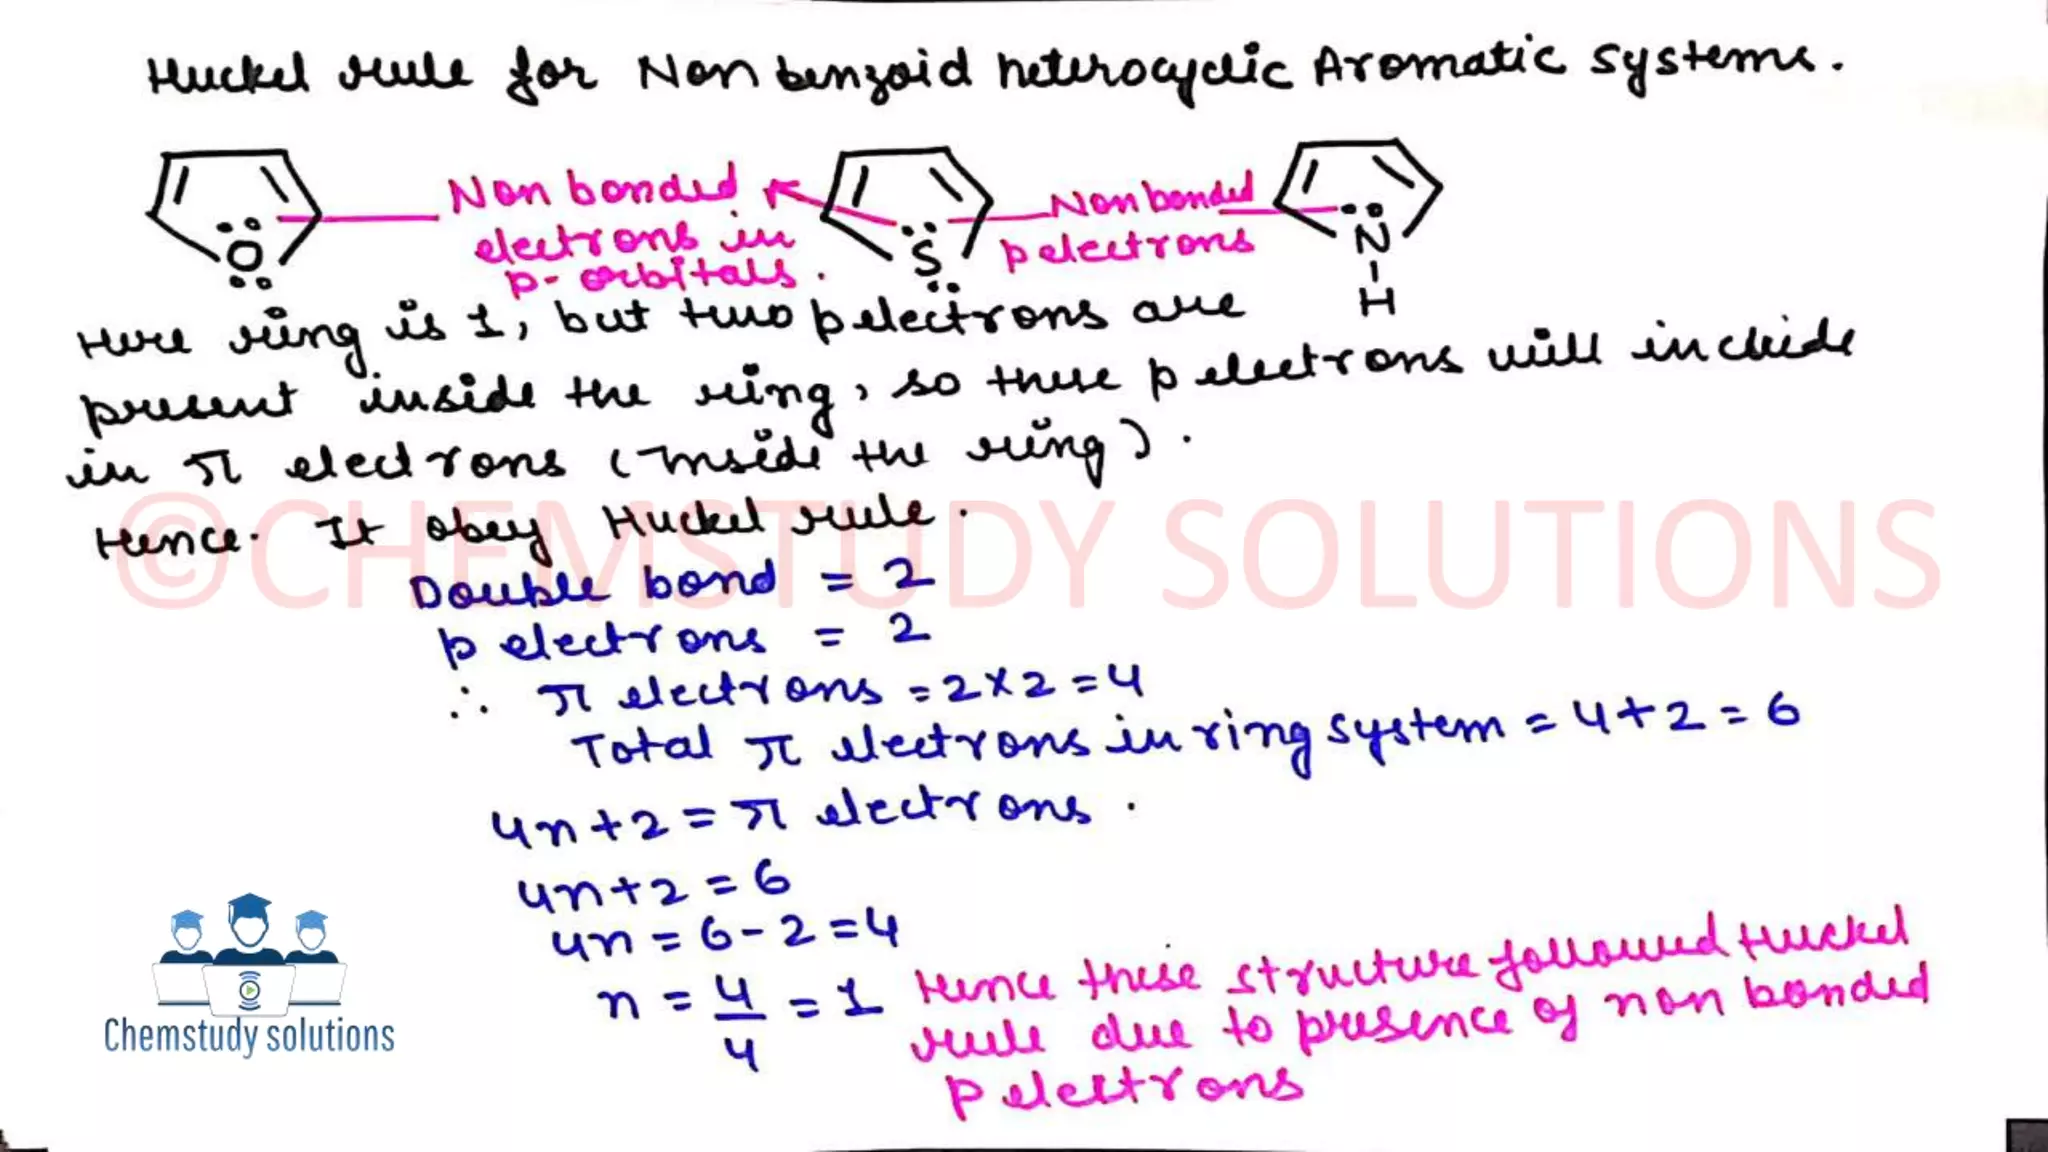 Huckel rule for Non benzoid heterocyclic Aromatic systems.
Non bonded
electrons in
p-orbitals.
Non bonded
p electrons
O
S
N
H
Here ring is 1, but two p electrons are
present inside the ring, so these p electrons will include
in π electrons (Inside the ring).
Hence. It obey Huckel rule.
©CHEMSTUDY SOLUTIONS
Double bond = 2
p electrons = 2
∴ π electrons = 2×2 = 4
Total π electrons in ring system = 4+2 = 6
4n+2 = π electrons.
4n+2 = 6
4n = 6-2 = 4
n = 4/4 = 1
Hence these structure followed Huckel
rule due to presence of non bonded
p electrons
Chemstudy solutions